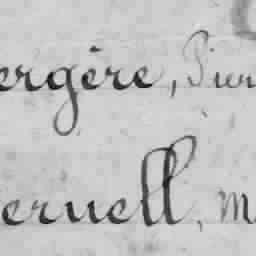 ergère, Pier
ernell, M